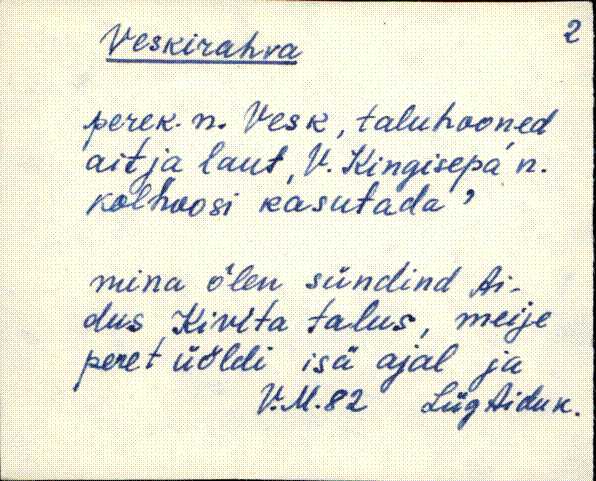 Veskirahva 2
perek. n. Vesk, taluhooned
ait ja laut, V. Kingisepa n.
kolhoosi kasutada,
mina õlen sündind Ai-
dus Kivita talus, meije
peret üöldi isä ajal ja
V.M.82 Lüg Aidu k.